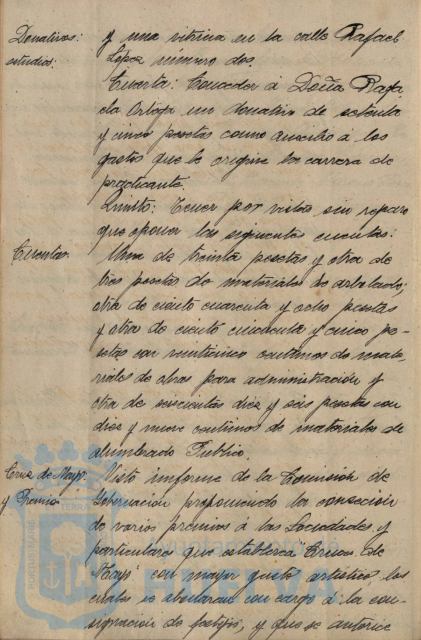 Donativos:
estudios:
y una vitrina en la calle Rafael
López número dos.
Cuarta: Conceder á Doña Rafa
ela Ortega un donativo de setenta
y cinco pesetas como auxilio á los
gastos que le origine la carrera de
practicante.
Quinto: Tener por vistas sin reparo
que oponer las siguientes cuentas:
Cuentas.
Una de treinta pesetas y otra de
tres pesetas de materiales de arbolado;
otra de ciento cuarenta y ocho pesetas
y otra de ciento cincuenta y cinco pe-
setas con veinticinco centimos de mate-
riales de obras para administración y
otra de seiscientas diez y seis pesetas con
diez y nueve centimos de materiales de
alumbrado Público.
Cruz de Mayo
y Premio
Visto informe de la Comisión de
Gobernación proponiendo la concesión
de varios premios á las Sociedades y
particulares que establezca Cruces de
Mayo con mayor gusto artístico, los
cuales se abonaran con cargo á la con-
signación de festejos, y que se autorice
PORTUS MARIS
TERRAE